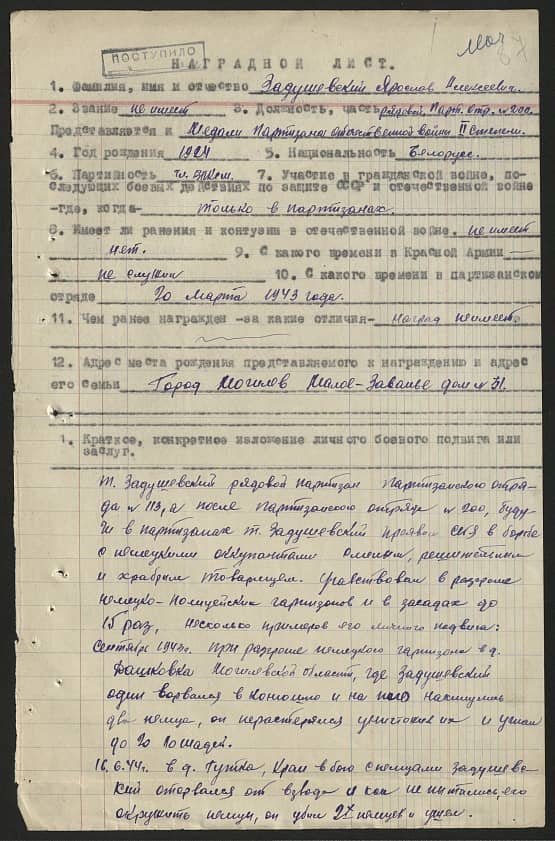 ПОСТУПИЛО
НАГРАДНОЙ ЛИСТ.
1. Фамилия, имя и отчество Задушевский Ярослав Алексеевич.
2. Звание не имеет 3. Должность, часть рядовой Парт. отр. № 200.
Представляется к Медали Партизана отечественной войны II степени.
4. Год рождения 1924 5. Национальность Белорус.
6. Партийность чл. ВЛКСМ. 7. Участие в гражданской войне, по-
следующих боевых действиях по защите СССР и отечественной войне
-где, когда- только в партизанах.
8. Имеет ли ранения и контузии в отечественной войне. не имеет
нет. 9. С какого времени в Красной Армии
не служил 10. С какого времени в партизанском
отряде 20 марта 1943 года.
11. Чем ранее награжден -за какие отличия- наград не имеет
12. Адрес места рождения представляемого к награждению и адрес
его семьи Город Могилев Малое- дом № 31.
1. Краткое, конкретное изложение личного боевого подвига или
заслуг.
т. Задушевский рядовой партизан партизанского отря-
да № 113, а после партизанского отряда № 200, буду-
чи в партизанах т. Задушевский проявил себя в борьбе
с немецкими оккупантами смелым, решительным
и храбрым товарищем. Участвовал в разгроме
немецко-полицейских гарнизонов и в засадах до
15 раз, несколько примеров его личного подвига:
Сентябрь 1943г. При разгроме немецкого гарнизона в д.
Дашковка Могилевской области, где Задушевский
один ворвался в конюшню и на него накинулись
два немца, он не растерялся уничтожил их и угнал
до 20 лошадей.
16.6.44г. в д. Гутка, в бою с немцами Задушев-
ский оторвался от взвода и как не пытались его
окружить немцы, он убил 2х немцев и ушел.